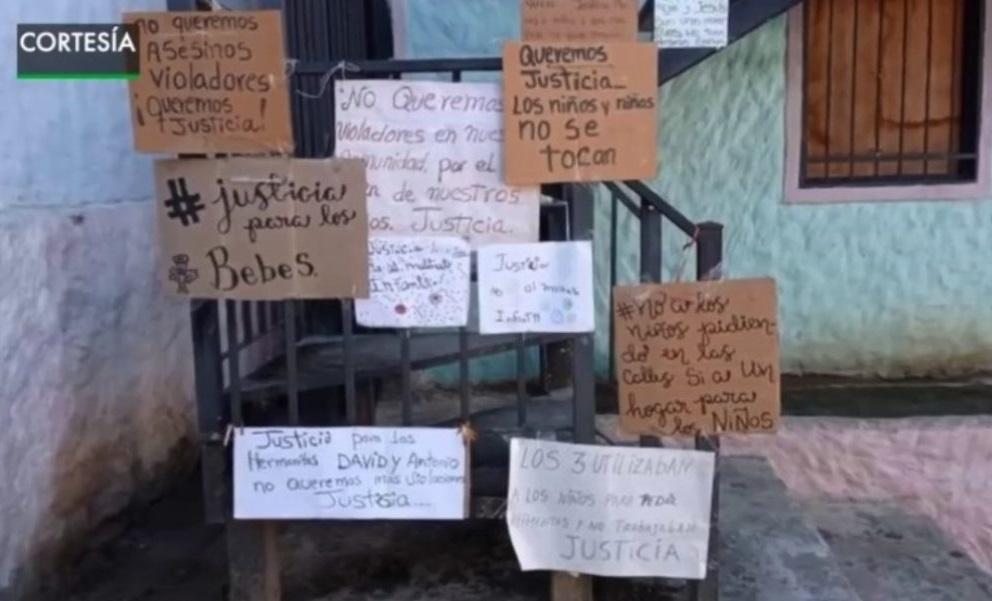 CORTESÍA
no queremos
Asesinos
Violadores
¡Queremos
Justicia!
Queremos
Justicia
Los niños y niñas
no se
tocan
No Queremos
Violadores en
por el
de nuestros
Justicia.
#justicia
para los
Bebes.
Justicia
no al maltrato
Infantil
Justicia
no al
#No a los
niños pidien-
do en las
Calles Si a Un
hogar para
los NIÑOS
Justicia para los
Hermanitos DAVID y Antonio
no queremos mas violaciones
Justicia....
LOS 3 UTILIZABAN
A LOS NIÑOS PARA PEDIR
ALIMENTOS Y NO TRABAJABAN
JUSTICIA